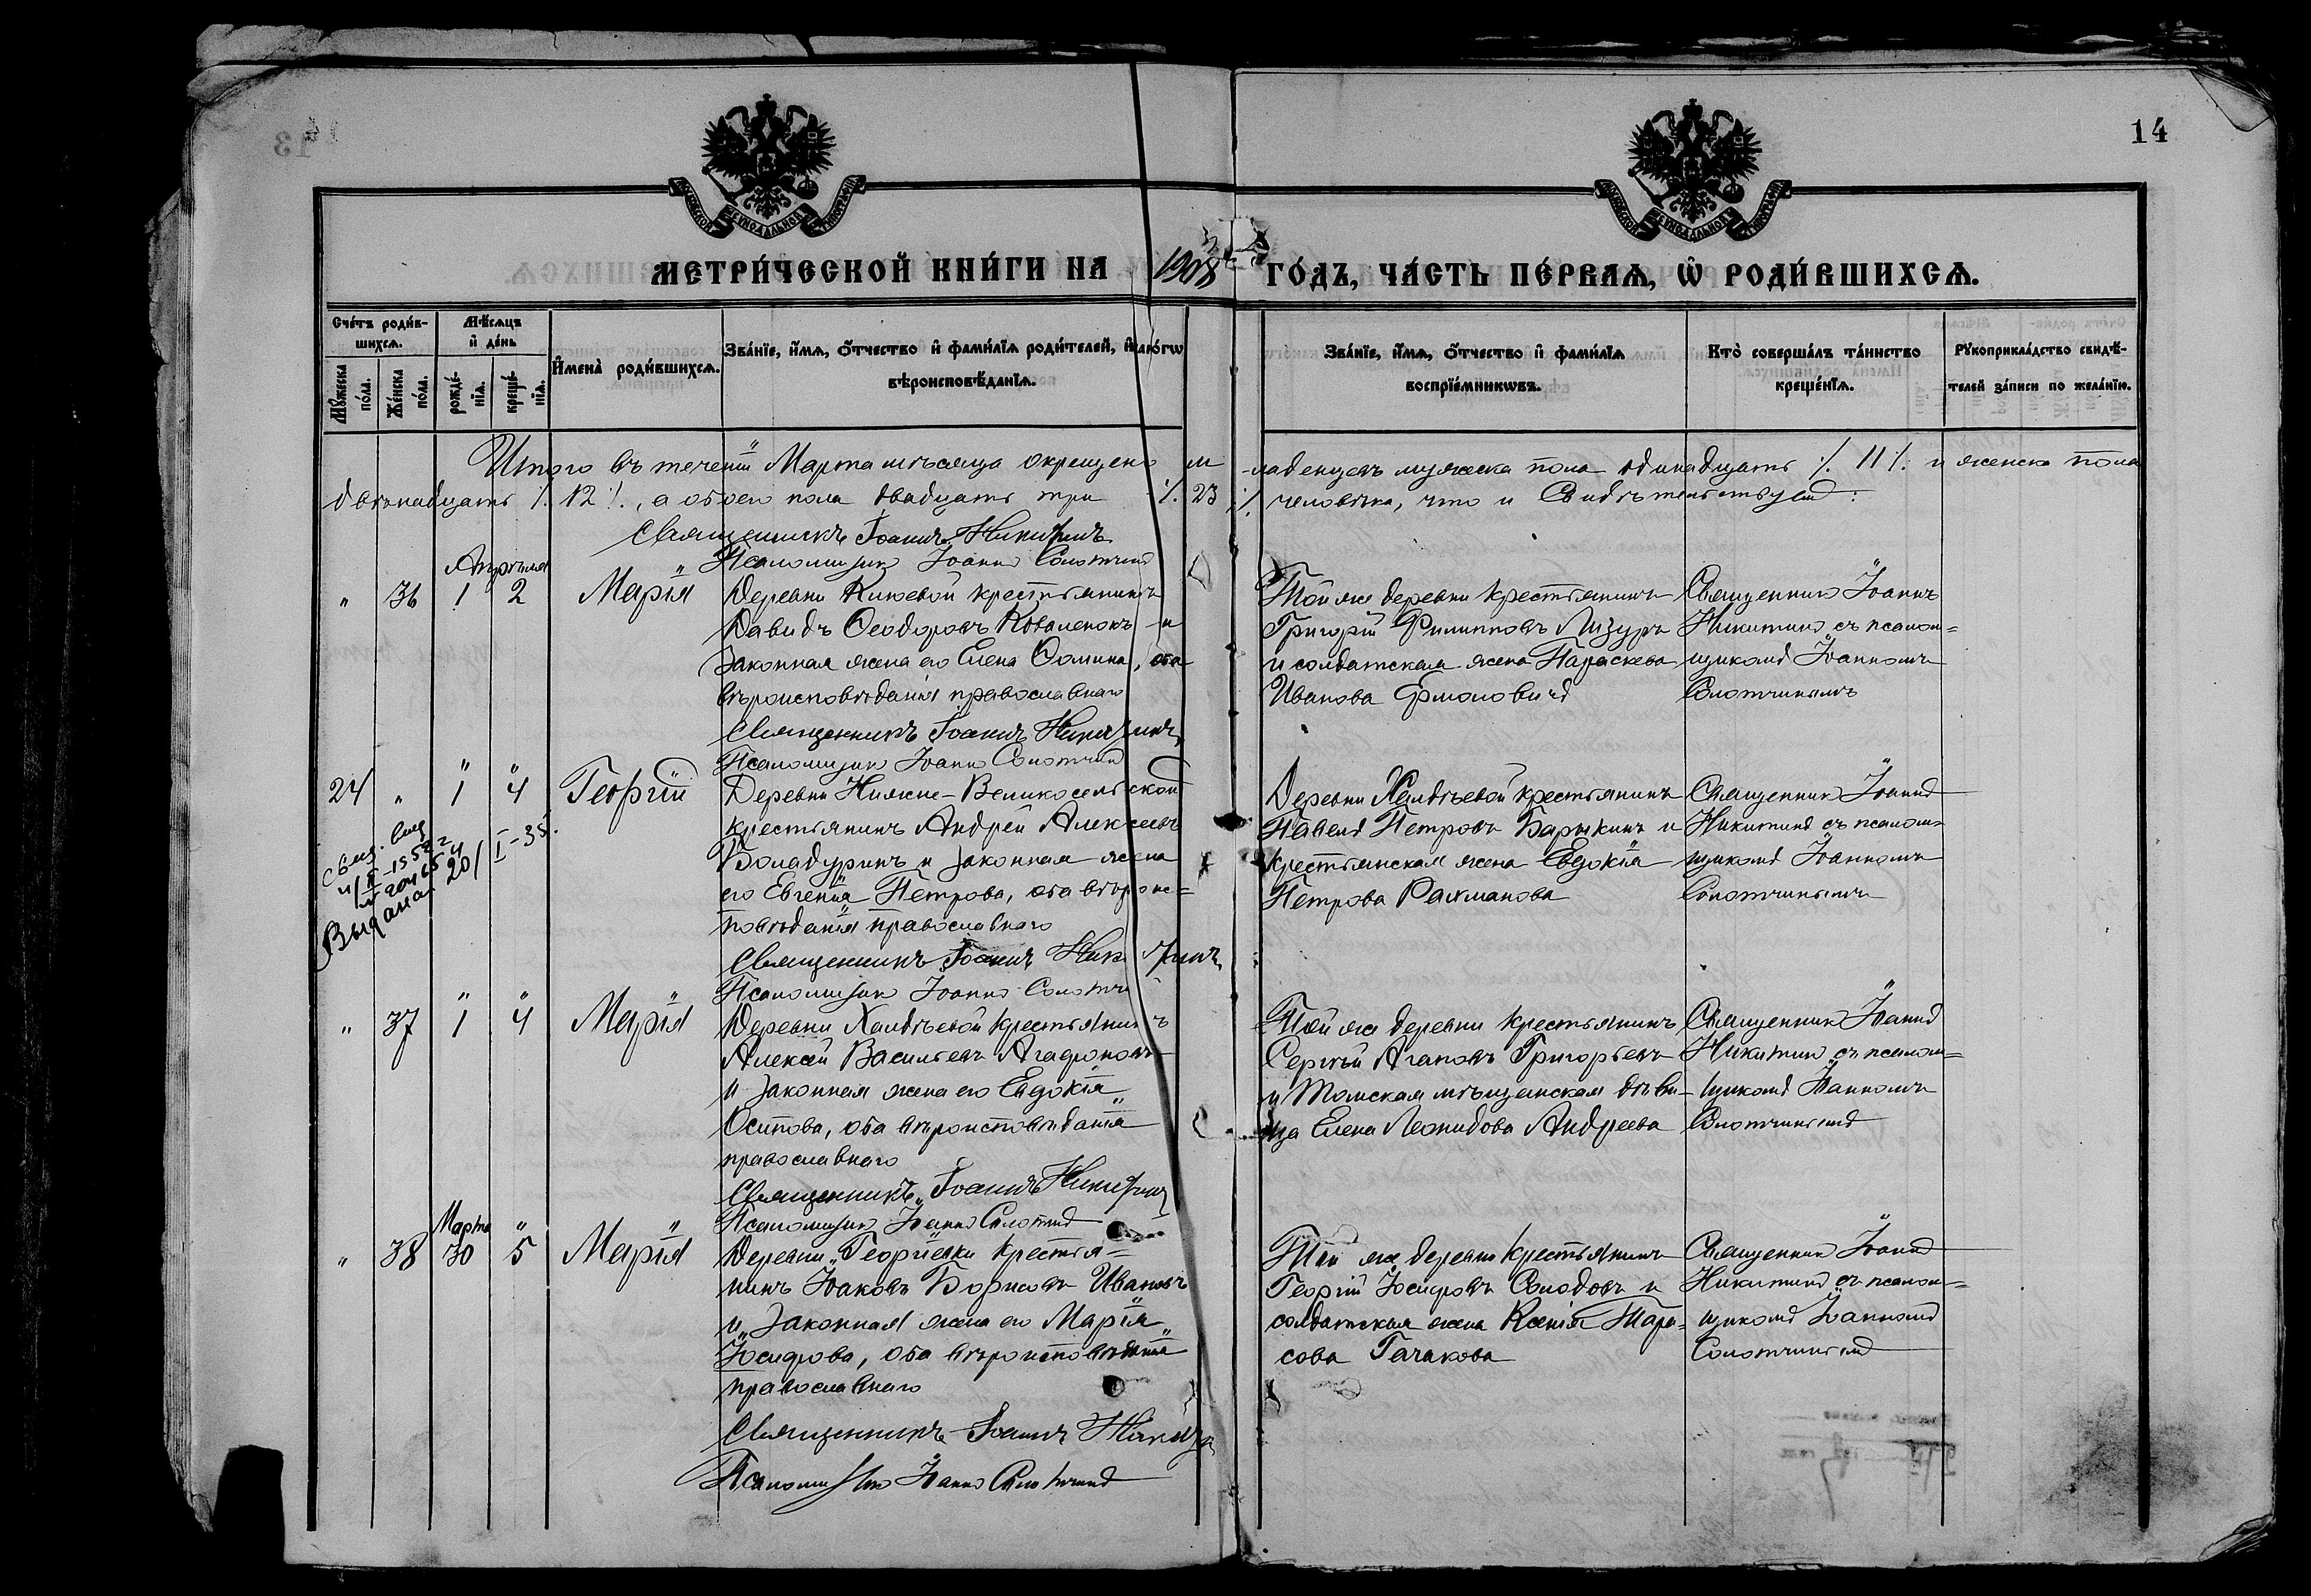 14
МЕТРИ́ЧЕСКОЙ КНИ́ГИ НА 1908 ГО́ДЪ, ЧА́СТЬ ПЕ́РВАѦ, Ѡ РОДИ́ВШИХСѦ.
Сче́тъ роди́в-
шихсѧ.
Мѣ́сѧцъ
и҆ де́нь
Мꙋ́жеска по́ла.
Же́нска по́ла.
рожде́-
нїѧ.
креще́-
нїѧ.
И҆мена̀ роди́вшихсѧ.
Зва́нїе, и҆́мѧ, ѻ҆́тчество и҆ фами́лїѧ роди́телей, и҆ како́гѡ
вѣроисповѣ́данїѧ.
Зва́нїе, и҆́мѧ, ѻ҆́тчество и҆ фами́лїѧ
воспрїе́мникѡвъ.
Кто̀ соверша́лъ та́инство
креще́нїѧ.
Рꙋкоприкла́дство свидѣ́-
телей за́писи по жела́нїю.
Итого въ теченіи Марта мѣсяца окрещено младенцевъ мужеска пола одинадцать ·/. 11 /. и женска пола
двѣнадцать ·/. 12 ·/., а обоего пола двадцать три ·/. 23 ·/. человѣка, что и свидѣтельствуемъ:
Священникъ Іоаннъ Никитинъ
Псаломщикъ Іоаннъ Солотчинъ
Апрѣля
" 36 1 2 Марія
Деревни Киневой крестьянинъ
Давидъ Ѳеодоровъ Коваленокъ и
законная жена его Елена Ѳомина, оба
вѣроисповѣданія православнаго
Священникъ Іоаннъ Никитинъ
Псаломщикъ Іоаннъ Солотчинъ
Той же деревни крестьянинъ
Григорій Филипповъ Лизуръ
и солдатская жена Параскева
Иванова Ермоловичъ
Священникъ Іоаннъ
Никитинъ съ псалом=
щикомъ Іоанномъ
Солотчинымъ
24 " " 1 " 4 Георгій
Деревни Нижне-Великосельской
крестьянинъ Андрей Алексеевъ
Боладуринъ и законная жена
его Евгенія Петрова, оба вѣроис=
повѣданія православнаго
Священникъ Іоаннъ Никитинъ
Псаломщикъ Іоаннъ Солотчи
Деревни Халдѣевой крестьянинъ
Павелъ Петровъ Барыкинъ и
крестьянская жена Евдокія
Петрова Рахманова
Священникъ Іоаннъ
Никитинъ съ псалом=
щикомъ Іоанномъ
Солотчинымъ
Выдана 20/I-35.
" 37 " 1 " 4 Марія
Деревни Халдѣевой крестьянинъ
Алексѣй Васильевъ Агафоновъ
и законная жена его Евдокія
Осипова, оба вѣроисповѣданія
православнаго
Священникъ Іоаннъ Никитинъ
Псаломщикъ Іоаннъ Солотчинъ
Той же деревни крестьянинъ
Сергѣй Агаповъ Григорьевъ
и Томская мѣщанская дѣви-
ца Елена Леонидова Андреева
Священникъ Іоаннъ
Никитинъ съ псалом=
щикомъ Іоанномъ
Солотчинымъ
Марта
" 38 30 " 5 Марія
Деревни Георгіевки крестья=
нинъ Іаковъ Борисовъ Ивановъ
и законная жена его Марія
Іосифова, оба вѣроисповѣданія
православнаго
Священникъ Іоаннъ Никитин
Псаломщикъ Іоаннъ Солотчинъ
Той же деревни крестьянинъ
Георгій Іосифовъ Солодовъ и
солдатская жена Ксенія Тара=
сова Гачакова
Священникъ Іоаннъ
Никитинъ съ псалом=
щикомъ Іоанномъ
Солотчинымъ